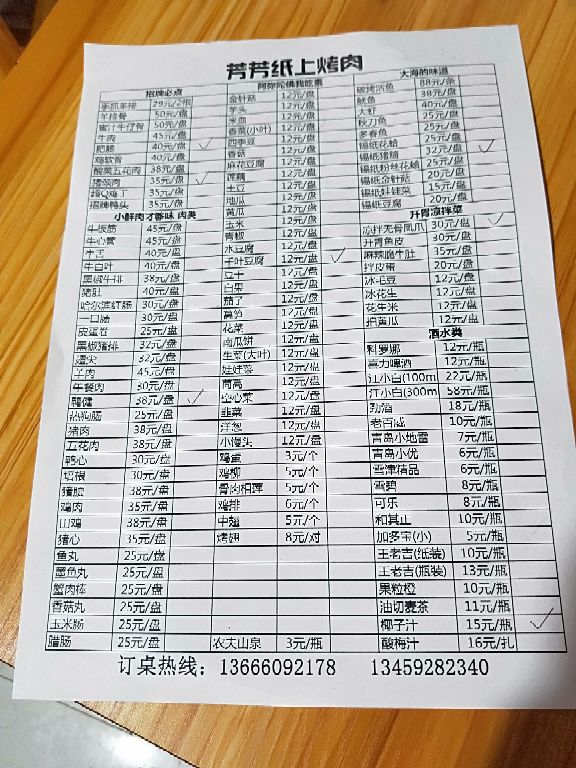 芳芳纸上烤肉
招牌必点
手抓羊排 29元/2根
羊排骨 50元/盘
蜜汁牛仔骨 50元/盘
牛肉 45元/盘
肥肠 40元/盘
鸡软骨 40元/盘
酸菜五花肉 38元/盘
猪颈肉 35元/盘
招Q鸡丁 35元/盘
招牌鸭头 35元/盘
小鲜肉才够味 肉类
牛板筋 45元/盘
牛心管 45元/盘
牛舌 40元/盘
牛百叶 40元/盘
黑椒牛排 38元/盘
猪肚 40元/盘
哈尔滨红肠 30元/盘
一口肠 30元/盘
皮蛋卷 25元/盘
黑椒猪排 32元/盘
腰尖 32元/盘
羊肉 45元/盘
午餐肉 30元/盘
鸭健 38元/盘
热狗肠 25元/盘
猪肉 38元/盘
五花肉 38元/盘
鸭心 30元/盘
培根 30元/盘
猪脸 38元/盘
鸡肉 35元/盘
山鸡 38元/盘
猪心 35元/盘
鱼丸 25元/盘
墨鱼丸 25元/盘
蟹肉棒 25元/盘
香菇丸 25元/盘
玉米肠 25元/盘
腊肠 25元/盘
阿弥陀佛我吃素
金针菇 12元/盘
芋头 12元/盘
米血 12元/盘
香菜(小叶) 12元/盘
四季豆 12元/盘
香菇 12元/盘
麻花豆腐 12元/盘
莲藕 12元/盘
土豆 12元/盘
地瓜 12元/盘
黄瓜 12元/盘
玉米 12元/盘
青椒 12元/盘
水豆腐 12元/盘
千叶豆腐 12元/盘
豆干 12元/盘
白果 12元/盘
茄子 12元/盘
莴笋 12元/盘
花菜 12元/盘
南瓜饼 12元/盘
生菜(大叶) 12元/盘
娃娃菜 12元/盘
茼蒿 12元/盘
空心菜 12元/盘
韭菜 12元/盘
洋葱 12元/盘
小馒头 12元/盘
鸡蛋 3元/个
鸡柳 5元/个
骨肉相连 5元/个
鸡排 6元/个
中翅 5元/个
烤翅 8元/对
农夫山泉 3元/瓶
大海的味道
碳烤活鱼 88元/条
鱿鱼 38元/盘
大虾 40元/盘
秋刀鱼 25元/盘
多春鱼 25元/盘
锡纸花蛤 25元/盘
锡纸猪脑 32元/盘
锡纸粉丝花蛤 25元/盘
锡纸金针菇 20元/盘
锡纸娃娃菜 15元/盘
锡纸豆腐 20元/盘
开胃凉拌菜
凉拌无骨凤爪 30元/盘
开胃鱼皮 30元/盘
麻辣脆牛肚 35元/盘
拌皮蛋 20元/盘
冰毛豆 12元/盘
冰花生 12元/盘
花生米 12元/盘
拍黄瓜 12元/盘
酒水类
科罗娜 12元/瓶
喜力啤酒 12元/瓶
江小白(100m 22元/瓶
江小白(300m 58元/瓶
劲酒 18元/瓶
老百威 10元/瓶
青岛小地雷 7元/瓶
青岛小优 6元/瓶
雪津精品 6元/瓶
雪碧 8元/瓶
可乐 8元/瓶
和其正 10元/瓶
加多宝(小) 5元/瓶
王老吉(纸装) 10元/瓶
王老吉(瓶装) 13元/瓶
果粒橙 10元/瓶
油切麦茶 11元/瓶
椰子汁 15元/瓶
酸梅汁 16元/扎
订桌热线: 13666092178 13459282340